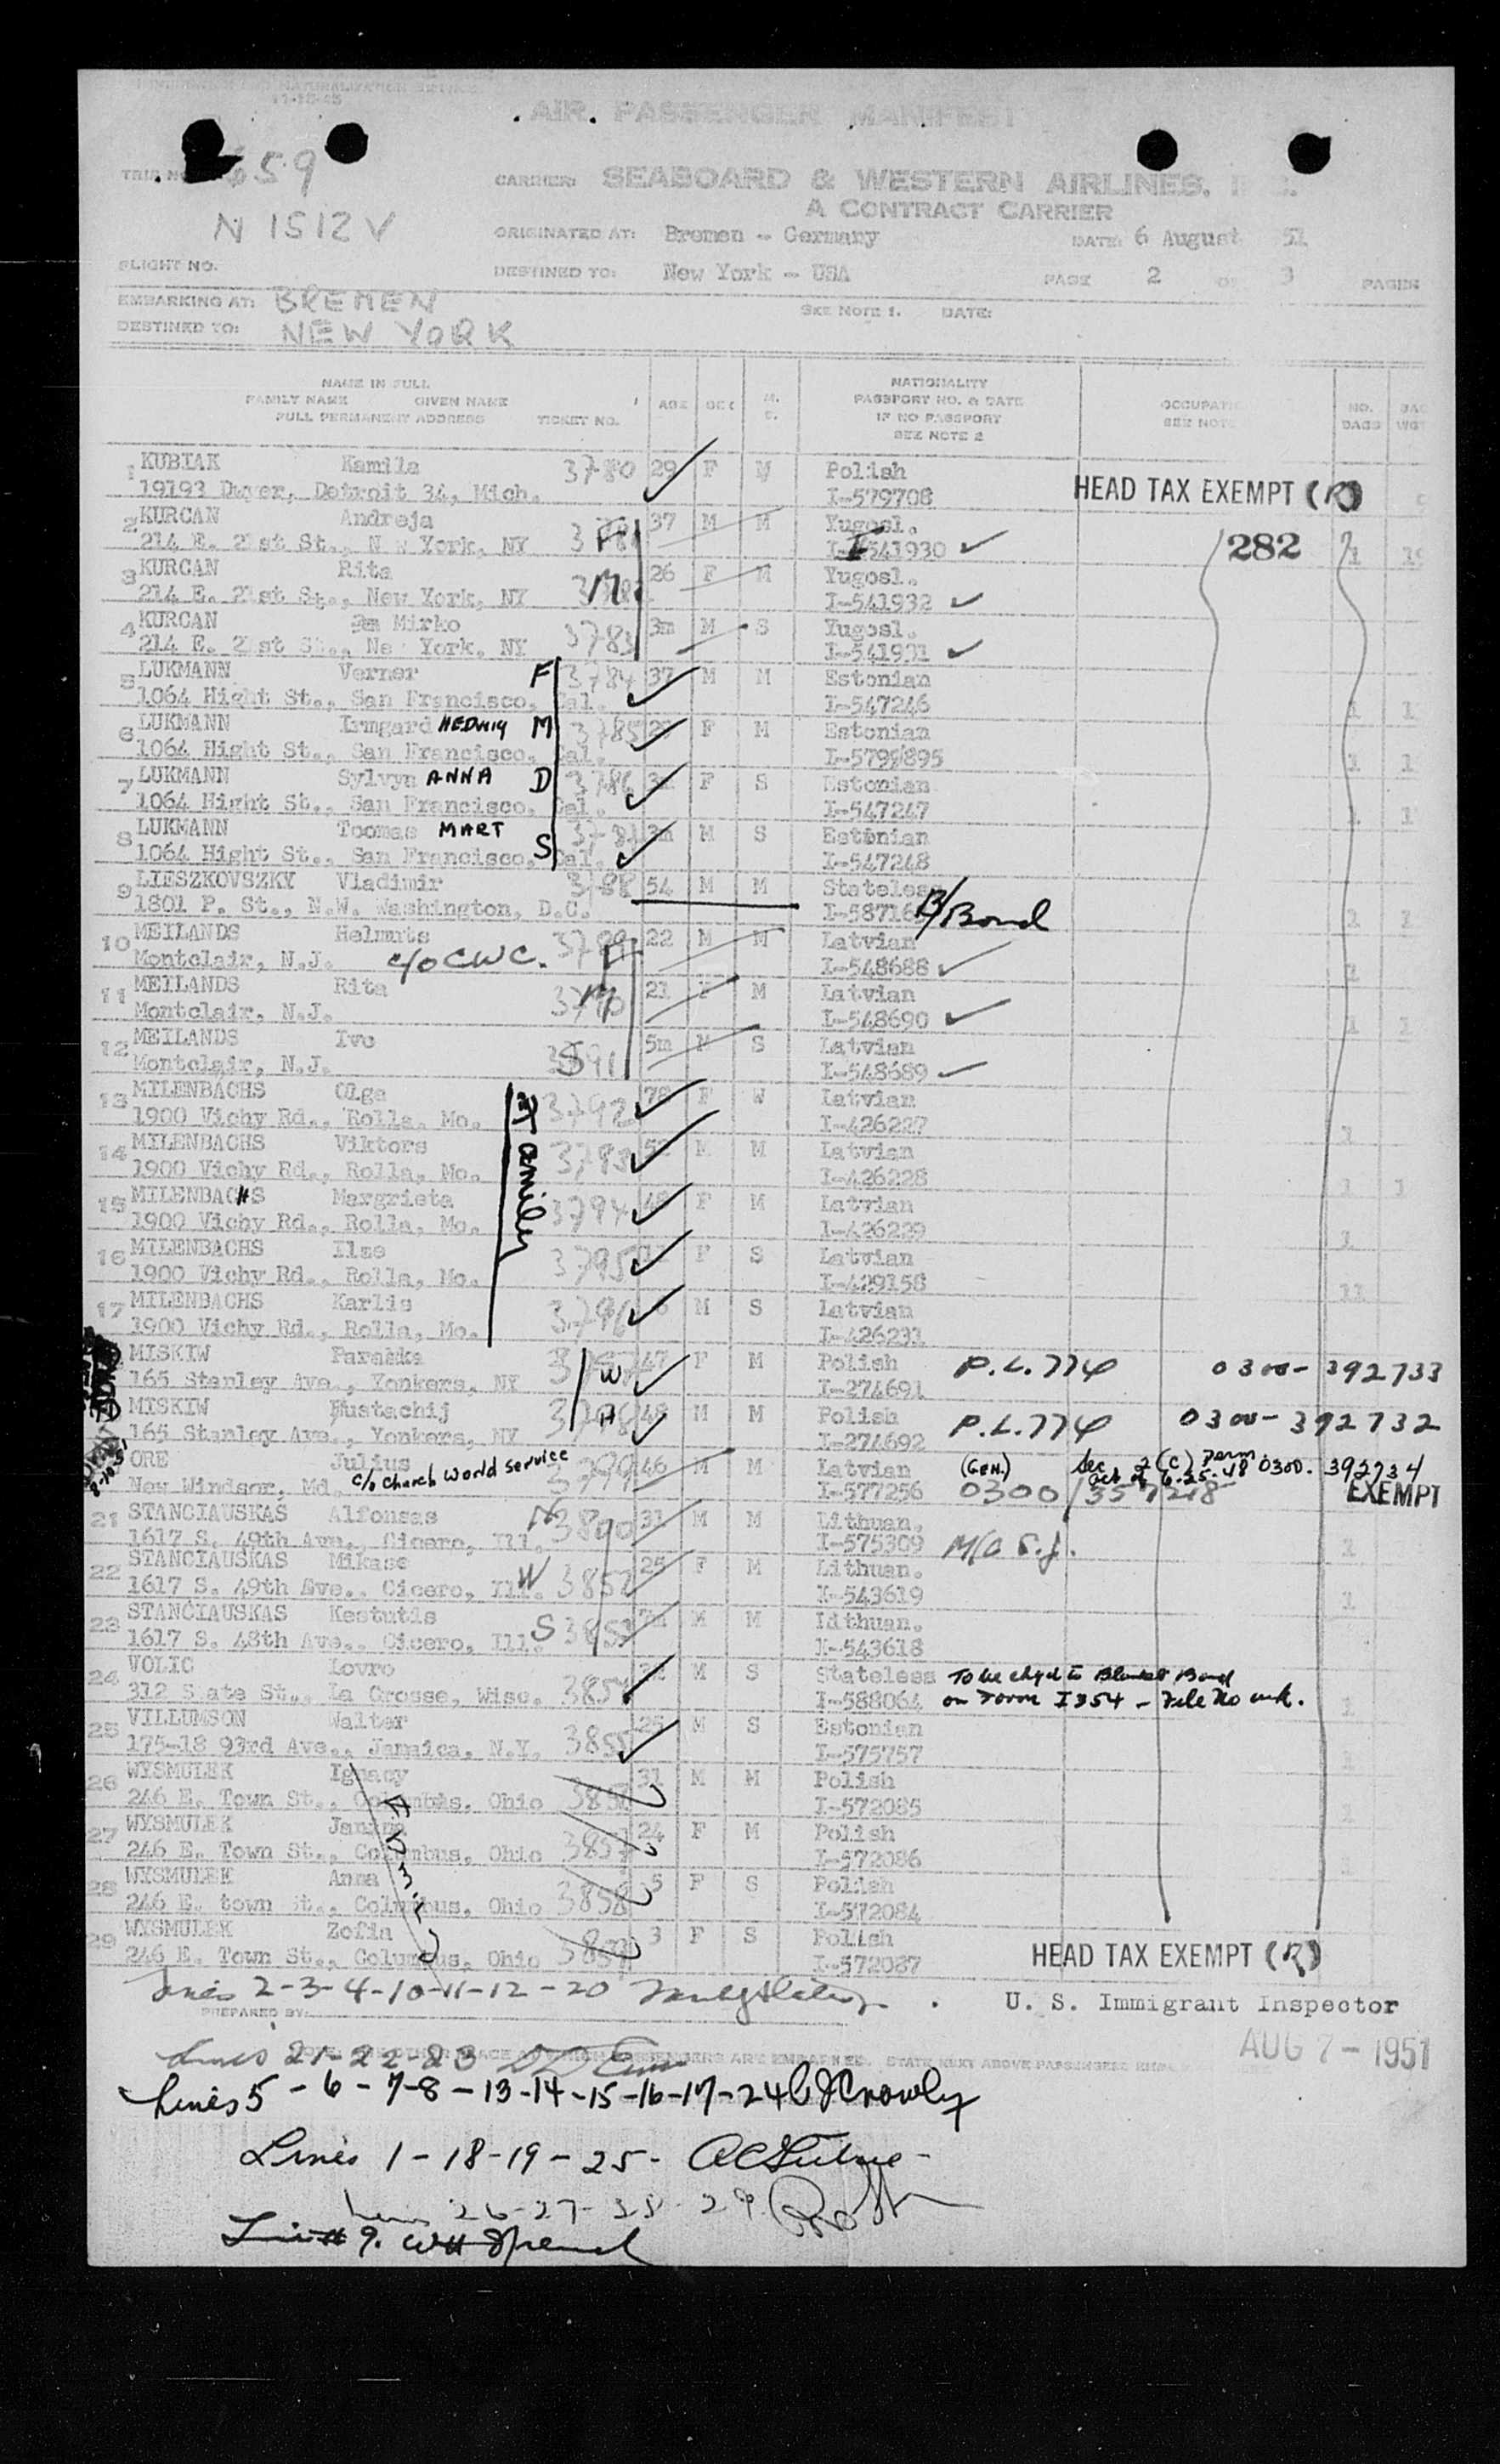 11-15-45
AIR PASSENGER MANIFEST
TRIP NO. 659
CARRIER: SEABOARD & WESTERN AIRLINES, INC.
A CONTRACT CARRIER
N 1512V
ORIGINATED AT: Bremen - Germany DATE: 6 August 51
FLIGHT NO.
DESTINED TO: New York - USA PAGE 2 OF 3 PAGES
EMBARKING AT: BREMEN SEE NOTE 1. DATE:
DESTINED TO: NEW YORK
NAME IN FULL
FAMILY NAME GIVEN NAME
FULL PERMANENT ADDRESS TICKET NO.
AGE SEX M. S.
NATIONALITY
PASSPORT NO. & DATE
IF NO PASSPORT
SEE NOTE 2
OCCUPATION
SEE NOTE
NO. BAGS
BAG WGT
1 KUBIAK Kamila 3780 29 F M Polish
19193 Dwyer, Detroit 34, Mich. I-579708 HEAD TAX EXEMPT (R)
2 KURCAN Andreja F 37 M M Yugosl.
214 E. 21st St., New York, NY I-541930 282 1
3 KURCAN Rita M 26 F M Yugosl.
214 E. 21st St., New York, NY I-541932
4 KURCAN Mirko 3783 3m M S Yugosl.
214 E. 21st St., New York, NY I-541931
5 LUKMANN Verner F 3784 37 M M Estonian
1064 Hight St., San Francisco, Cal. I-547246 1
6 LUKMANN Irmgard HEDWIG M 3785 F M Estonian
1064 Hight St., San Francisco, Cal. I-5799895 1
7 LUKMANN Sylvyn ANNA D 3786 F S Estonian
1064 Hight St., San Francisco, Cal. I-547247 1
8 LUKMANN Toomas MART S 3m M S Estonian
1064 Hight St., San Francisco, Cal. I-547248
9 LIESZKOVSZKY Vladimir 3788 54 M M Stateless
1801 P. St., N.W. Washington, D.C. B/Bond 1 1
10 MEILANDS Helmuts 3789 22 M M Latvian
Montclair, N.J. c/o CWC. F I-548688 1
11 MEILANDS Rita 3790 M 21 F M Latvian
Montclair, N.J. I-548690 1 1
12 MEILANDS Ivo 3791 S 5m M S Latvian
Montclair, N.J. I-548689
13 MILENBACHS Olga 3792 78 F W Latvian
1900 Vichy Rd., Rolla, Mo. I-426227 1
Family
14 MILENBACHS Viktors 3793 M M Latvian
1900 Vichy Rd., Rolla, Mo. I-426228 1 1
15 MILENBACHS Margrieta 3794 F M Latvian
1900 Vichy Rd., Rolla, Mo. I-426229 1
16 MILENBACHS Ilze 3795 F S Latvian
1900 Vichy Rd., Rolla, Mo. I-429158 11
17 MILENBACHS Karlis 3796 M S Latvian
1900 Vichy Rd., Rolla, Mo. I-426231
MISKIW Paraska W 47 F M Polish P.L. 774 0300-392733
165 Stanley Ave., Yonkers, NY I-274691
MISKIW Eustachij H 48 M M Polish P.L. 774 0300-392732
165 Stanley Ave., Yonkers, NY I-274692
ORE Julius 3799 46 M M Latvian (GEN.) Sec 2(c) perm 0300. 392734
New Windsor, Md. c/o Church World Service I-577256 Act of 6.25.48 EXEMPT
21 STANCIAUSKAS Alfonsas H 3800 31 M M Lithuan.
1617 S. 49th Ave., Cicero, Ill. I-575309 1
22 STANCIAUSKAS Mikase W 3852 25 F M Lithuan.
1617 S. 49th Ave., Cicero, Ill. I-543619 1
23 STANCIAUSKAS Kestutis S 3853 M M Lithuan.
1617 S. 48th Ave., Cicero, Ill. I-543618
24 VOLIC Lovro 3854 M S Stateless To be chgd to Blanket Bond
312 State St., La Crosse, Wisc. I-588064 on Form I354 - File No unk. 1
25 VILLUMSON Walter 3855 25 M S Estonian
175-18 93rd Ave., Jamaica, N.Y. I-575757 1
26 WYSMULEK Ignacy 31 M M Polish
246 E. Town St., Columbus, Ohio 3856 I-572085 1
FAMILY
27 WYSMULEK Janina 24 F M Polish
246 E. Town St., Columbus, Ohio 3857 I-572086
28 WYSMULEK Anna 5 F S Polish
246 E. town St., Columbus, Ohio 3858 I-572084
29 WYSMULEK Zofia 3 F S Polish
246 E. Town St., Columbus, Ohio 3859 I-572087 HEAD TAX EXEMPT (R)
Lines 2-3-4-10-11-12-20
U. S. Immigrant Inspector
PREPARED BY:
AUG 7 - 1951
Lines 21-22-23
Lines 5-6-7-8-13-14-15-16-17-24 Crowly
Lines 1-18-19-25-
Lines 26-27-28-29
Line # 9.